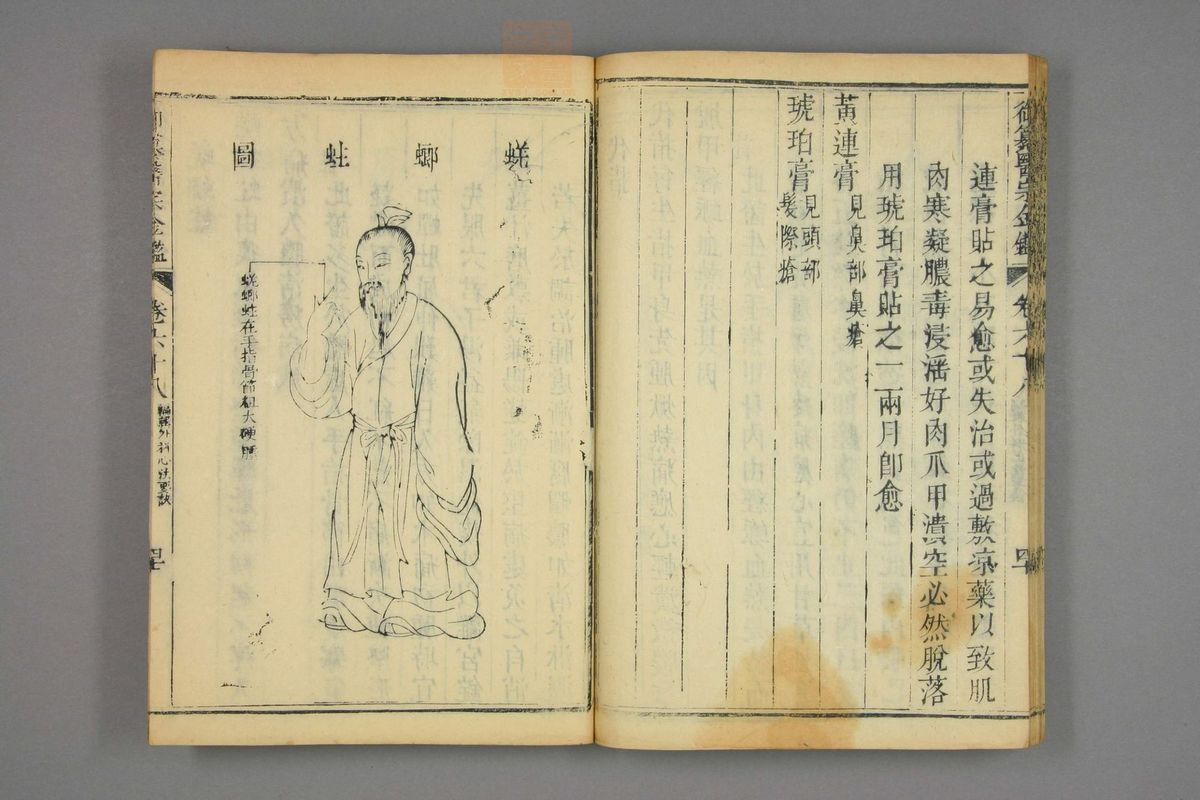 御纂醫宗金鑑 卷六十八
連膏貼之易愈或失治或過敷涼藥以致肌
肉寒凝膿毒浸淫好肉爪甲潰空必然脫落
用琥珀膏貼之一兩月卽愈
黃連膏 見鼻部鼻瘡
琥珀膏 見頭部髮際瘡
蜣螂蛀圖
蜣螂蛀在手指骨節粗大硬腫
醫宗金鑑 卷六十八 編輯外科心法要訣